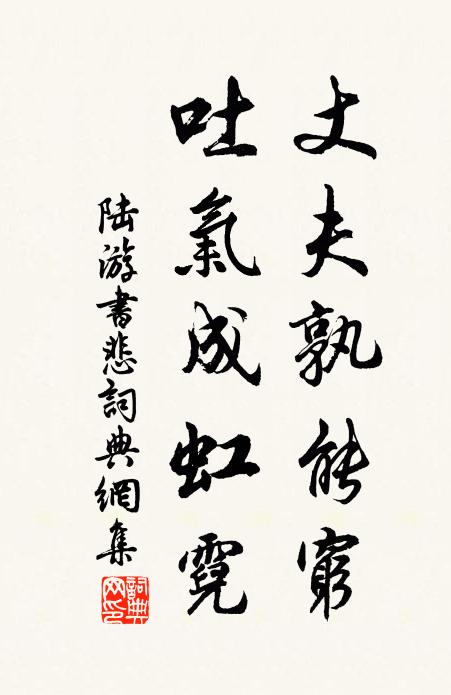 丈夫孰能窮
吐氣成虹霓
陸游書悲詞典網集
詞典網印